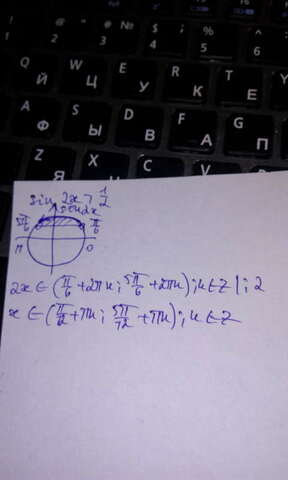 @ # № $ ; % :
2 3 4 5 6
Q Й
W Ц
E У
R К
T Е
A Ф
S Ы
D В
F А
G П
Z Я
sin 2x > 1/2
sin2x
5π/6 π/6
π 0
2x ∈ (π/6 + 2πn ; 5π/6 + 2πn) ; n ∈ Z | : 2
x ∈ (π/12 + πn ; 5π/12 + πn) ; n ∈ Z